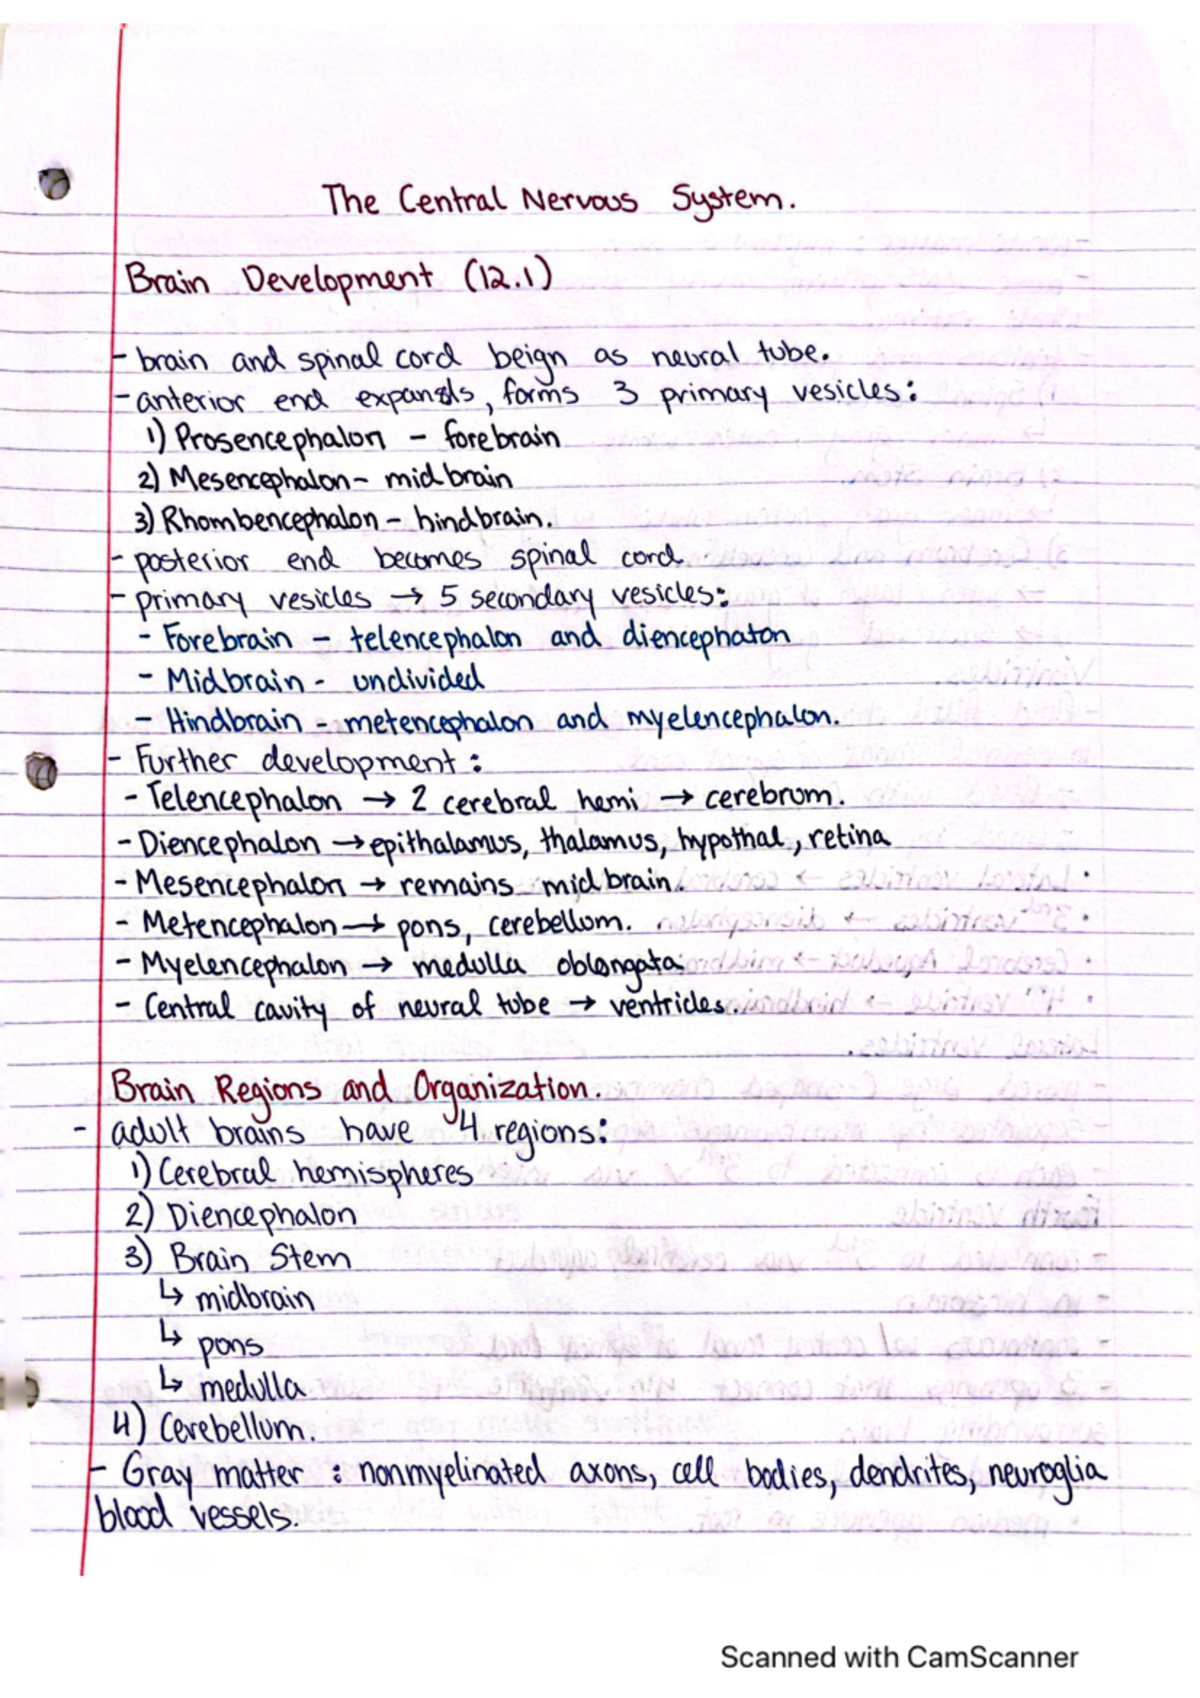 The Central Nervous System.
Brain Development (12.1)
- brain and spinal cord beign as neural tube.
- anterior end expands, forms 3 primary vesicles:
1) Prosencephalon - forebrain
2) Mesencephalon - midbrain
3) Rhombencephalon - hindbrain.
- posterior end becomes spinal cord.
- primary vesicles → 5 secondary vesicles:
- Forebrain - telencephalon and diencephalon
- Midbrain - undivided
- Hindbrain - metencephalon and myelencephalon.
- Further development:
- Telencephalon → 2 cerebral hemi → cerebrum.
- Diencephalon → epithalamus, thalamus, hypothal, retina
- Mesencephalon → remains midbrain.
- Metencephalon → pons, cerebellum.
- Myelencephalon → medulla oblongata
- Central cavity of neural tube → ventricles.
Brain Regions and Organization.
- adult brains have 4 regions:
1) Cerebral hemispheres
2) Diencephalon
3) Brain Stem
↳ midbrain
↳ pons
↳ medulla
4) Cerebellum.
- Gray matter : nonmyelinated axons, cell bodies, dendrites, neuroglia
blood vessels.
Scanned with CamScanner